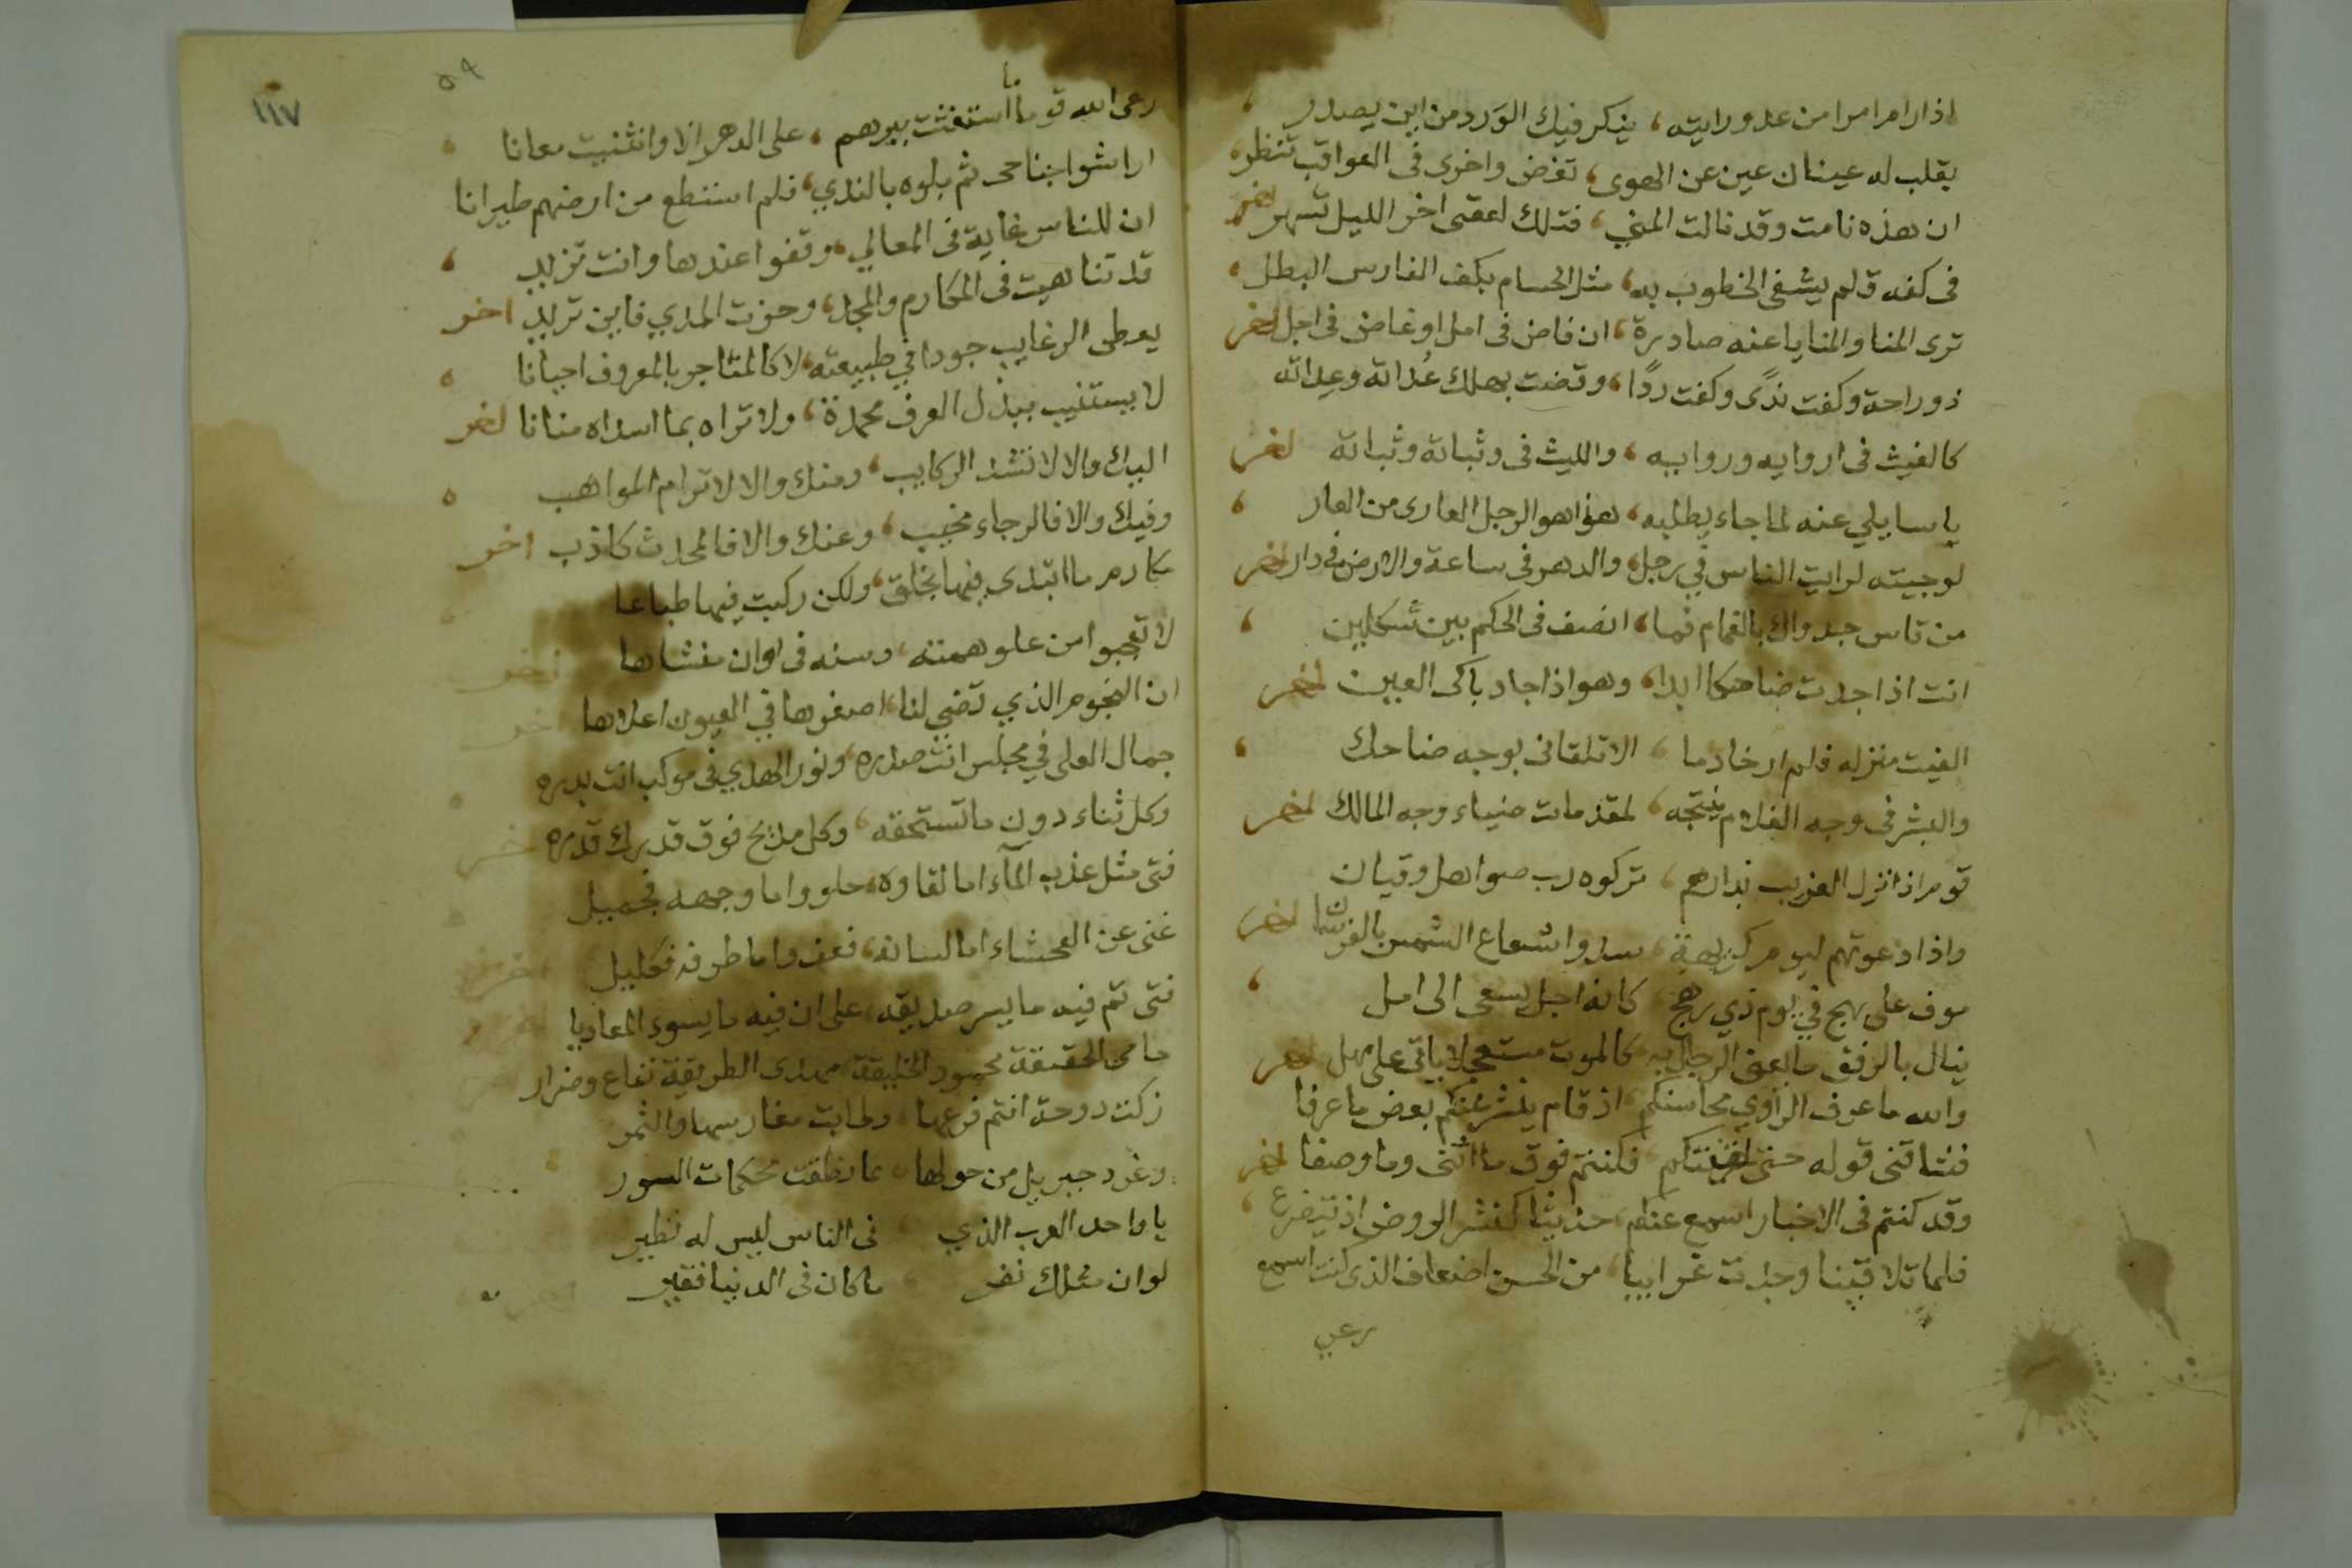 اذا رام امرا من عدو رايته، يذكر فيك الورد من اين يصدر
يقلب له عينان عين عن الهوى، تغض واخرى فى العواقب تنظر،
ان هذه نامت وقد نالت المنى، فتلك لعقبى اخر الليل تسهر اخر
فى كفه قلم يشفى الخطوب به، مثل الحسام بكف الفارس البطل،
ترى المنا والمنايا عنه صادرة، ان فاض فى امل او غاض فى اجل اخر
ذو راحة وكفت ندًى وكفت ردًا، وقضت بهلك عُداته وعِداته
كالغيث فى اروايه وروايه، والليث فى وثباته وثباته اخر
يا سايلي عنه لما جاء يطلبه، هذا هو الرجل العارى من العار،
لو جيته لرايت الناس في رجل، والدهر فى ساعة والارض فى دار اخر
من قاس جدواك بالغمام فما، انصف فى الحكم بين شكلين،
انت اذا جدت ضاحكا ابدا، وهو اذا جاد باكى العين اخر
الفيت منزله فلم ار خادما، الا تلقانى بوجه ضاحك،
والبشر فى وجه الغلام نتيجه، لمقدمات ضياء وجه المالك اخر
قوم اذا نزل الغريب بدارهم، تركوه رب صواهل وقيان
واذا دعوتهم ليوم كريهة، سدوا شعاع الشمس بالفرسان اخر
موف على مهج في يوم ذي رهج، كانه اجل يسعى الى امل،
ينال بالرفق ما يعيى الرجال به، كالموت مستعجلا ياتى على مهل اخر
والله ما عرف الراوي محاسنكم، اذ قام ينشر عنكم بعض ما عرفا
فشاقنى قوله حتى لقيتكم، فكنتم فوق ما اثنى وما وصفا اخر
وقد كنتم فى الاخبار اسمع عنكم، حديثا كنشر الروض اذ يتضوع،
فلما تلاقينا وجدت غرايبا، من الحسن اضعاف الذى كنت اسمع
رعى
٥٩
١١٧
رعى الله قوما ما استغثت ببرهم، على الدهر الا وانثنيت معانا
اراشوا جناحى ثم بلوه بالندي، فلم استطع من ارضهم طيرانا
ان للناس غاية فى المعالي، وقفوا عندها وانت تزيد،
قد تناهيت فى المكارم والمجد، وحزت المدي فاين تريد اخر
يعطى الرغايب جودا في طبيعته، لا كالمتاجر بالمعروف احيانا
لا يستثيب ببذل العرف محمدة، ولا تراه بما اسداه منانا اخر
اليك والا لا تشد الركايب، ومنك والا لا ترام المواهب
وفيك والا فالرجاء مخيب، وعنك والا فالمحدث كاذب اخر
مكارم ما ابتدى فيها بخلق، ولكن ركبت فيها طباعا
لا تعجبوا من علو همته، وسنه فى اوان منشاها اخر
ان النجوم الذي تضي لنا، اصغرها في العيون اعلاها اخر
جمال العلى في مجلس انت صدره، ونور الهدي فى موكب انت بدره
وكل ثناء دون ما تستحقه، وكل مديح فوق قدرك قدره اخر
فتى مثل عذب المآء اما لقاوه، حلو واما وجهه فجميل
غنى عن الفحشاء اما لسانه، فعف واما طرفه فكليل اخر
فتى تم فيه ما يسر صديقه، على ان فيه ما يسوء المعاديا
حامى الحقيقة محمود الخليقة مهدى الطريقة نفاع وضرار
زكت دوحة انتم فرعها، وطابت مغارسها والثمر
وغرد جبريل من حولها، بما نطقت محكمات السور
يا واحد العرب الذي، فى الناس ليس له نظير
لو ان مثلك نفر، ما كان فى الدنيا فقير اخر